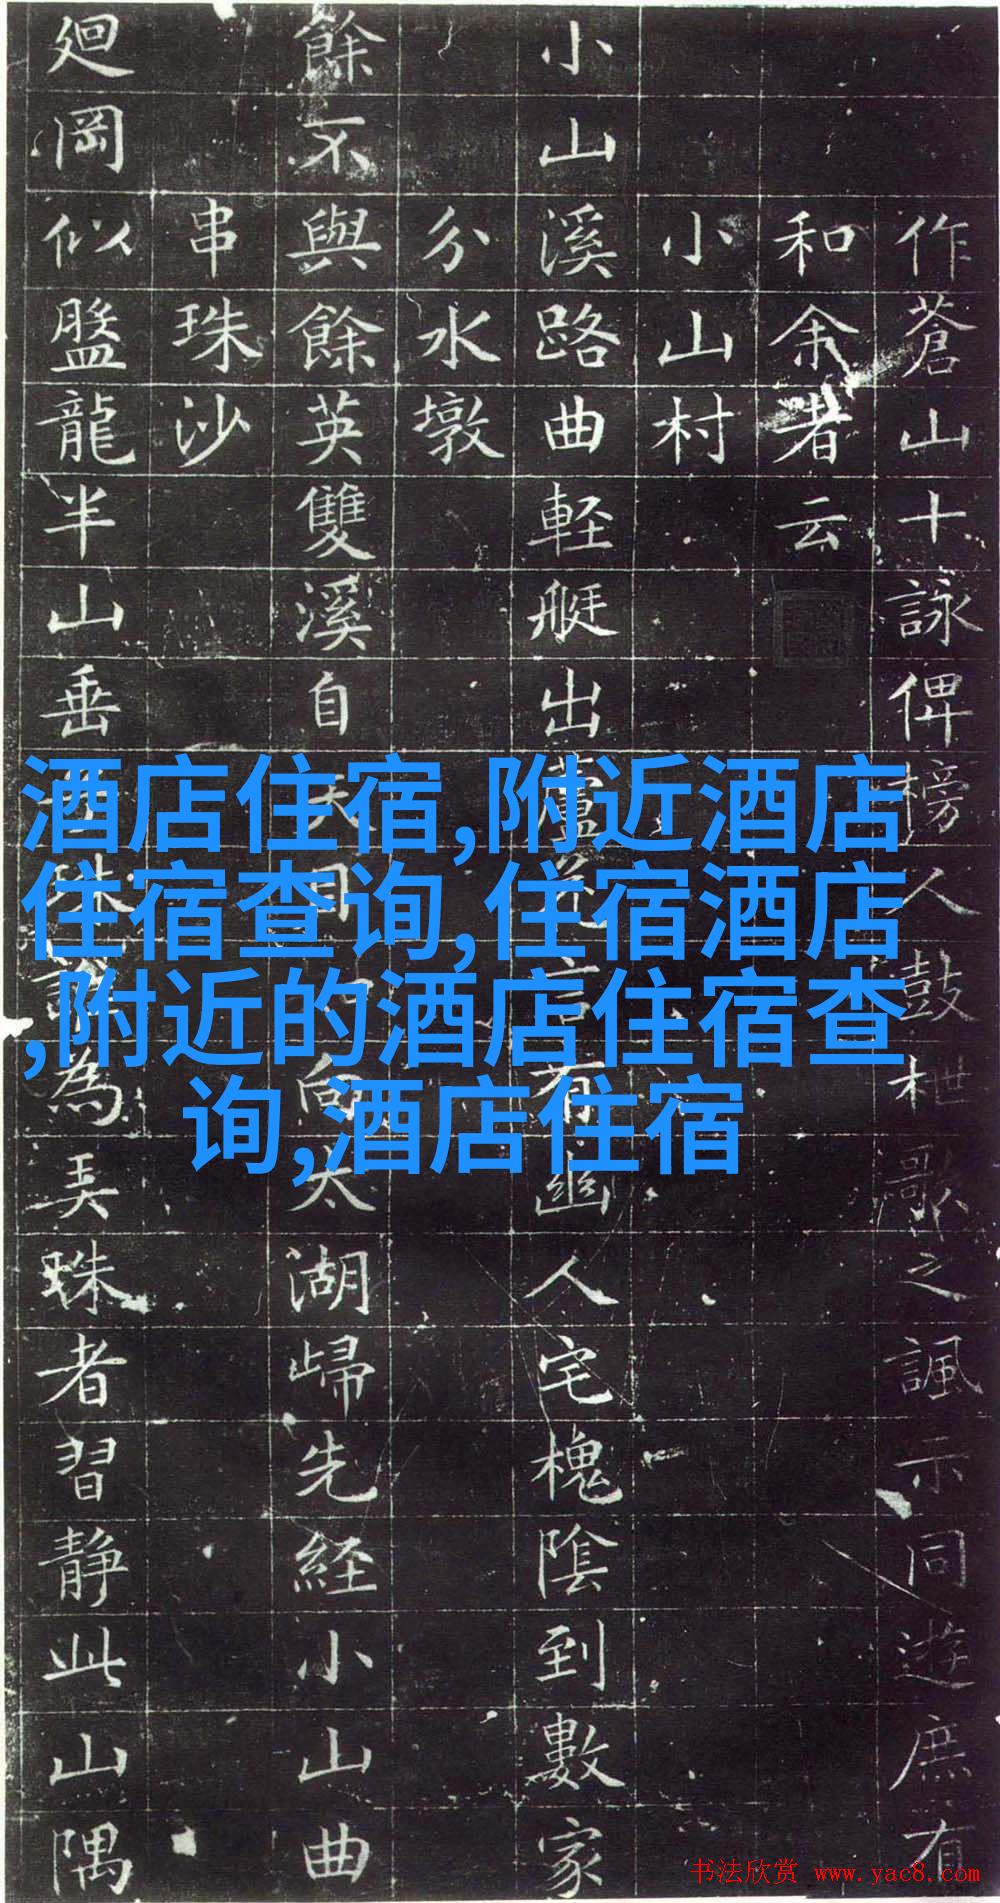 作蒼山十詠俾榜人鼓枻歌之諷示同遊庶有
和余者云
小山村
小山溪路曲軽艇出蘆言有幽人宅槐陰到數家
分水墩
餘不與餘英雙溪自天目向太湖歸先経小山曲
串珠沙
廻岡似盤龍半山垂珠為弄珠者習靜此山隅
酒店住宿,附近酒店
住宿查询,住宿酒店
,附近的酒店住宿查
询,酒店住宿
书法欣赏 www.yac8.com